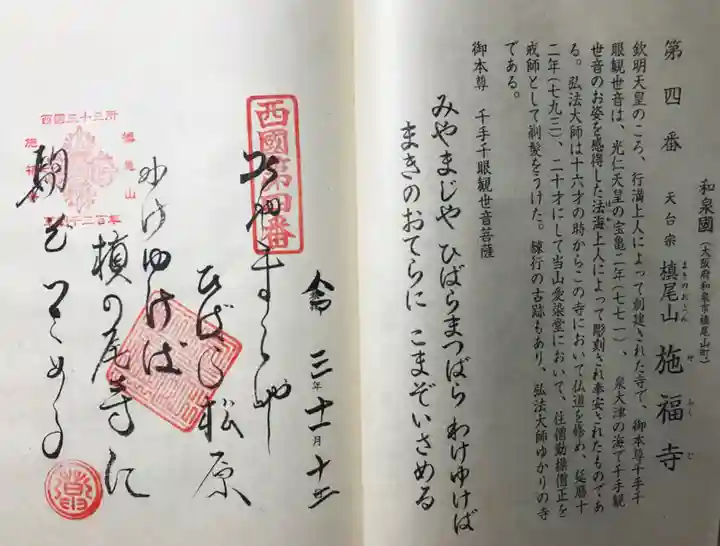 和泉國（大阪府和泉市槙尾山町）
第四番 天台宗 槙尾山 施福寺
まきのおさん せふくじ
欽明天皇のころ、行満上人によって創建された寺で、御本尊千手千
眼観世音は、光仁天皇の宝亀二年（七七一）、泉大津の海で千手観
世音のお姿を感得した法海上人によって彫刻され奉安されたものであ
る。弘法大師は十六才の時からこの寺において仏道を修め、延暦十
二年（七九三）、二十才にして当山愛染堂において、住僧勤操僧正を
戒師として剃髪をうけた。練行の古跡もあり、弘法大師ゆかりの寺
である。
御本尊 千手千眼観世音菩薩
みやまじや ひばらまつばら わけゆけば
まきのおてらに こまぞいさめる
令和三年十一月十
西國第四番
みやまじや
ひばら松原
わけゆけば
槙の尾寺に
駒ぞいさめる
西国三十三所
槙尾山
施福寺